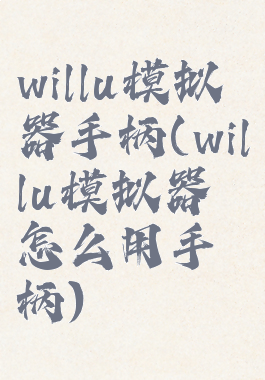 willu模拟
器手柄(wil
lu模拟器
怎么用手
柄)